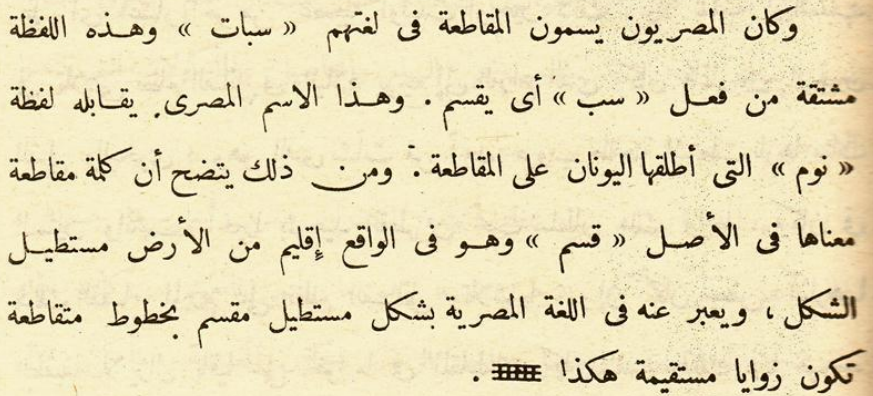 وكان المصريون يسمون المقاطعة فى لغتهم « سبات » وهذه اللفظة
مشتقة من فعل « سب » أى يقسم . وهذا الاسم المصرى يقابله لفظة
« نوم » التى أطلقها اليونان على المقاطعة . ومن ذلك يتضح أن كلمة مقاطعة
معناها فى الأصل « قسم » وهو فى الواقع إقليم من الأرض مستطيل
الشكل ، ويعبر عنه فى اللغة المصرية بشكل مستطيل مقسم بخطوط متقاطعة
تكون زوايا مستقيمة هكذا 𓈈 .